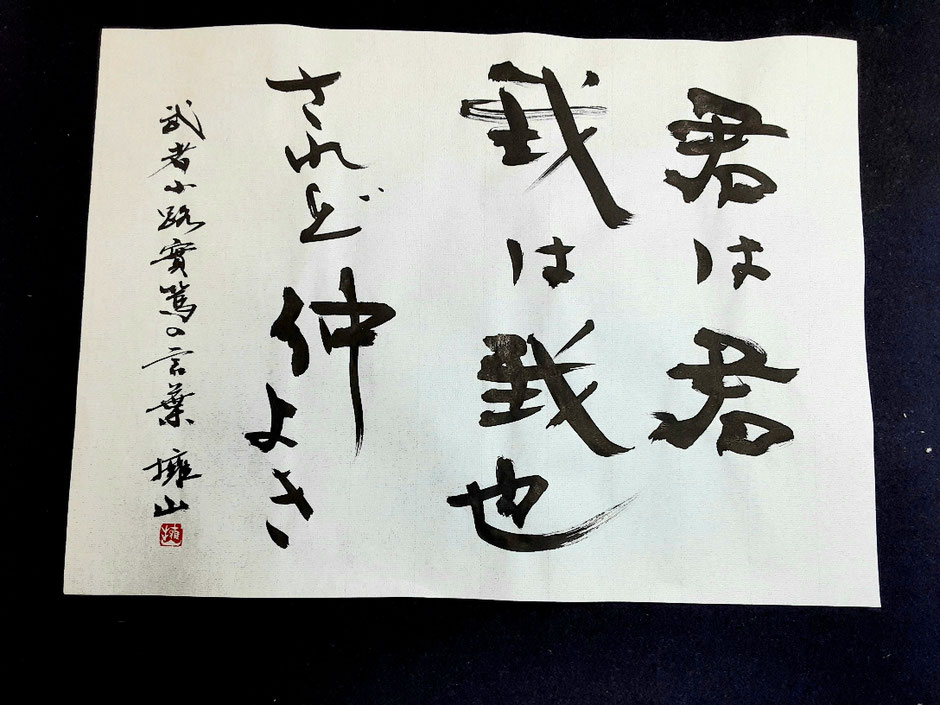 君は君
我は我也
されど仲よき
武者小路實篤の言葉 擁山